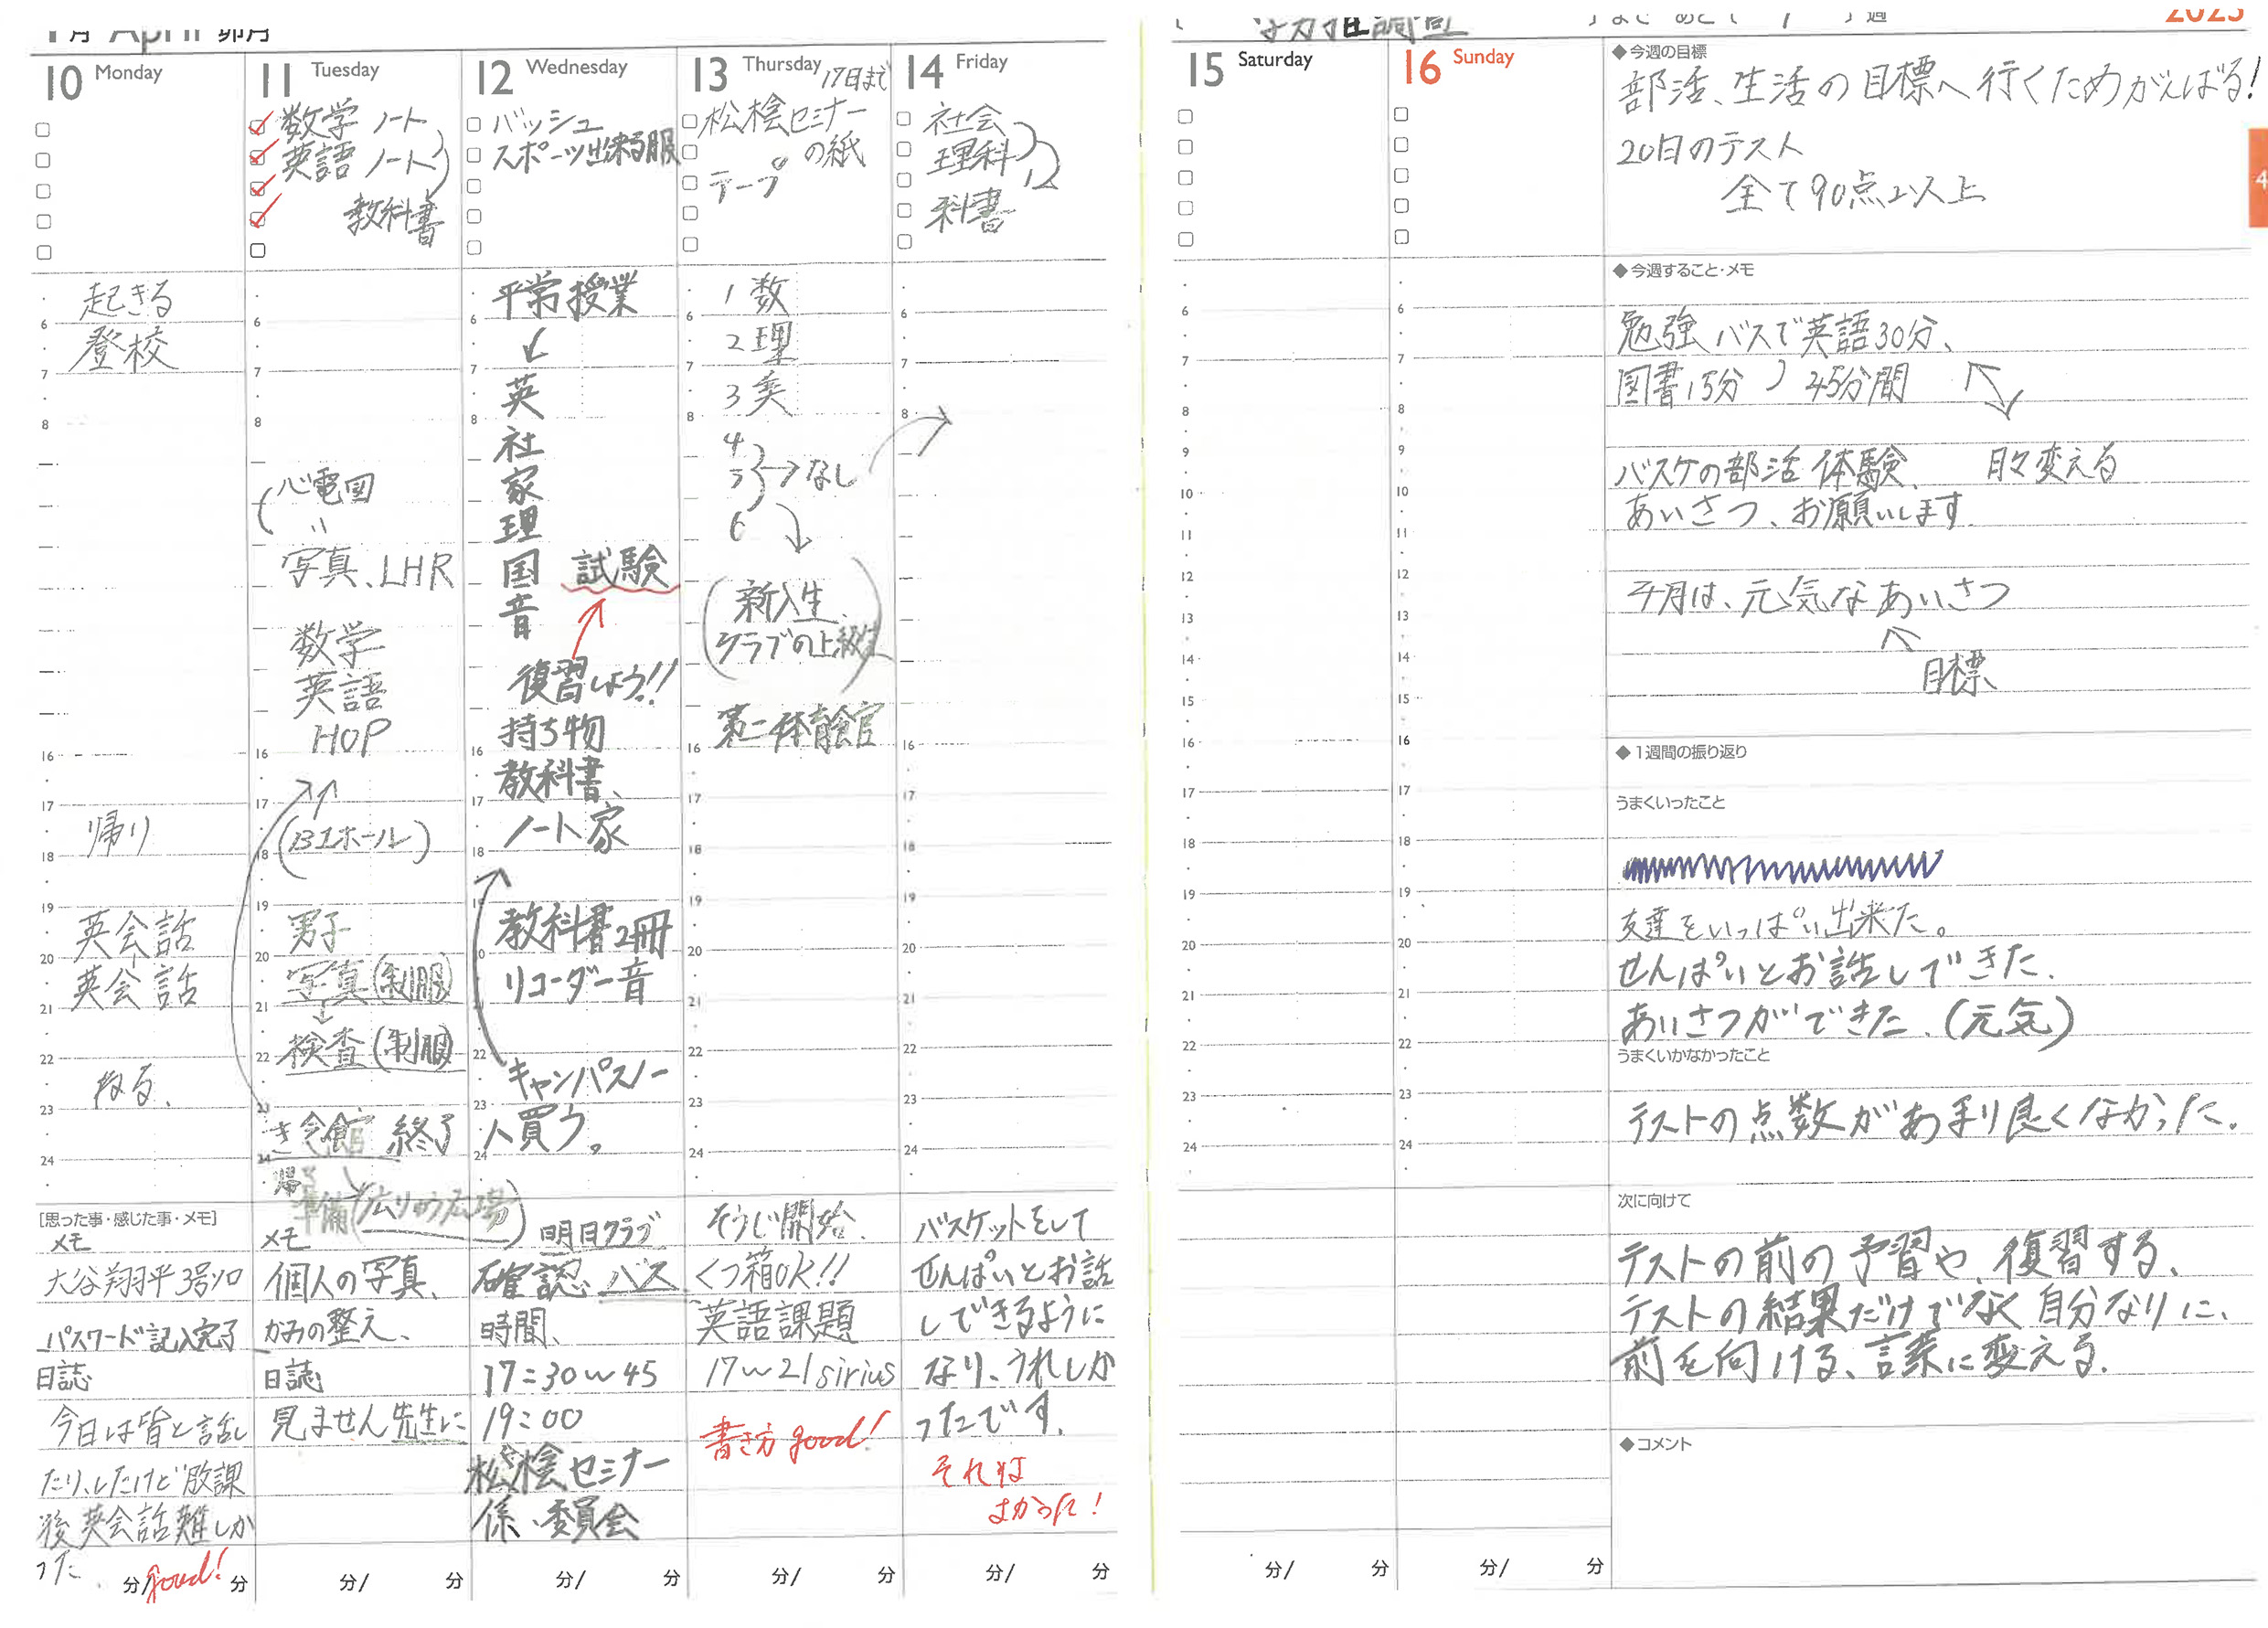 月 April 卯月
10 Monday
起きる
6
登校
7
8
16
17
帰り
18
19
英会話
20
英会話
21
22
ねる、
23
24
[思った事・感じた事・メモ]
メモ
大谷翔平3号ソロ
パスワード記入完了
日誌
今日は皆と話し
たり、したけど放課
後英会話難しか
った、
分/ 分
good!
11 Tuesday
数学 ノート
英語 ノート
教科書
6
7
8
心電図
写真、LHR
数学
英語
HOP
16
17
(B1ホール)
18
19
男子
20
写真(制服)
21
検査(制服)
22
23
会館 終了
24
準備
メモ
個人の写真、
かみの整え、
日誌
見ません先生に
分/ 分
12 Wednesday
バッシュ
スポーツ出来る服
平常授業
6
7
英
8
社
家
理
国 試験
音
復習しよう!!
持ち物
16
教科書、
17
ノート家
18
教科書2冊
20
リコーダー音
22
キャンパスノー
23
ト買う。
24
明日クラブ
確認、バス
時間、
17:30~45
19:00
松桧セミナー
係、委員会
分/ 分
13 Thursday 17日まで
松桧セミナー
の紙
テープ
1 数
6
2 理
7
3 英
8
4
5 →なし
6
(新入生、
クラブの上級生)
第二体育館
16
17
18
19
20
21
22
23
24
そうじ開始、
くつ箱OK!!
英語課題
17~21 sirius
書き方good!
分/ 分
14 Friday
社会
理科
科書
6
7
8
16
17
18
19
20
21
22
23
24
バスケットをして
せんぱいとお話
しできるように
なり、うれしか
ったです。
それは
よかった!
分/ 分
15 Saturday
6
7
8
9
10
11
12
13
14
15
16
17
18
19
20
21
22
23
24
分/ 分
16 Sunday
6
7
8
9
10
11
12
13
14
15
16
17
18
19
20
21
22
23
24
分/ 分
2023
4
◆今週の目標
部活、生活の目標へ行くためがんばる!
20日のテスト
全て90点以上
◆今週すること・メモ
勉強 バスで英語30分、
図書15分 45分間
バスケの部活体験、 日々変える
あいさつ、お願いします。
4月は、元気なあいさつ
目標
◆1週間の振り返り
うまくいったこと
友達をいっぱい出来た。
せんぱいとお話しできた。
あいさつができた。(元気)
うまくいかなかったこと
テストの点数があまり良くなかった。
次に向けて
テストの前の予習や、復習する、
テストの結果だけでなく自分なりに、
前を向ける、言葉に変える。
◆コメント